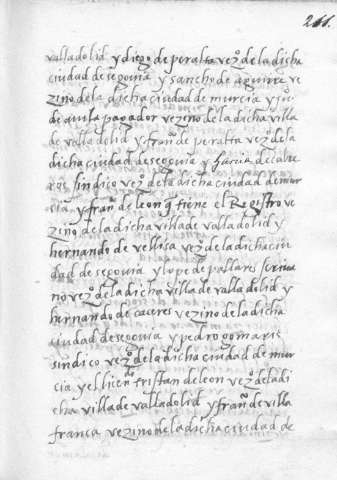 261.
valladolid y diego de peralta vezº de la dicha
ciudad de segouia y sancho de aguirre ve
zino de la dicha ciudad de murcia y juº
de auila pagador vezino de la dicha villa
de valladolid y franº de peralta vezº de la
dicha ciudad de segouia y garcia de
sindico vezº de la dicha ciudad de mur
cia y franº de leon q tiene el Registro ve
zino de la dicha villa de valladolid y
hernando de vellisa vezº de la dicha ciu
dad de segouia y lope de pallares scriua
no vezº de la dicha villa de valladolid y
hernando de caceres vezino de la dicha
ciudad de segouia y pedro gomariz
sindico vezº de la dicha ciudad de mur
cia y el licendo xristan de leon vezº de la di
cha villa de valladolid y franº de villa
franca vezino de la dicha ciudad de